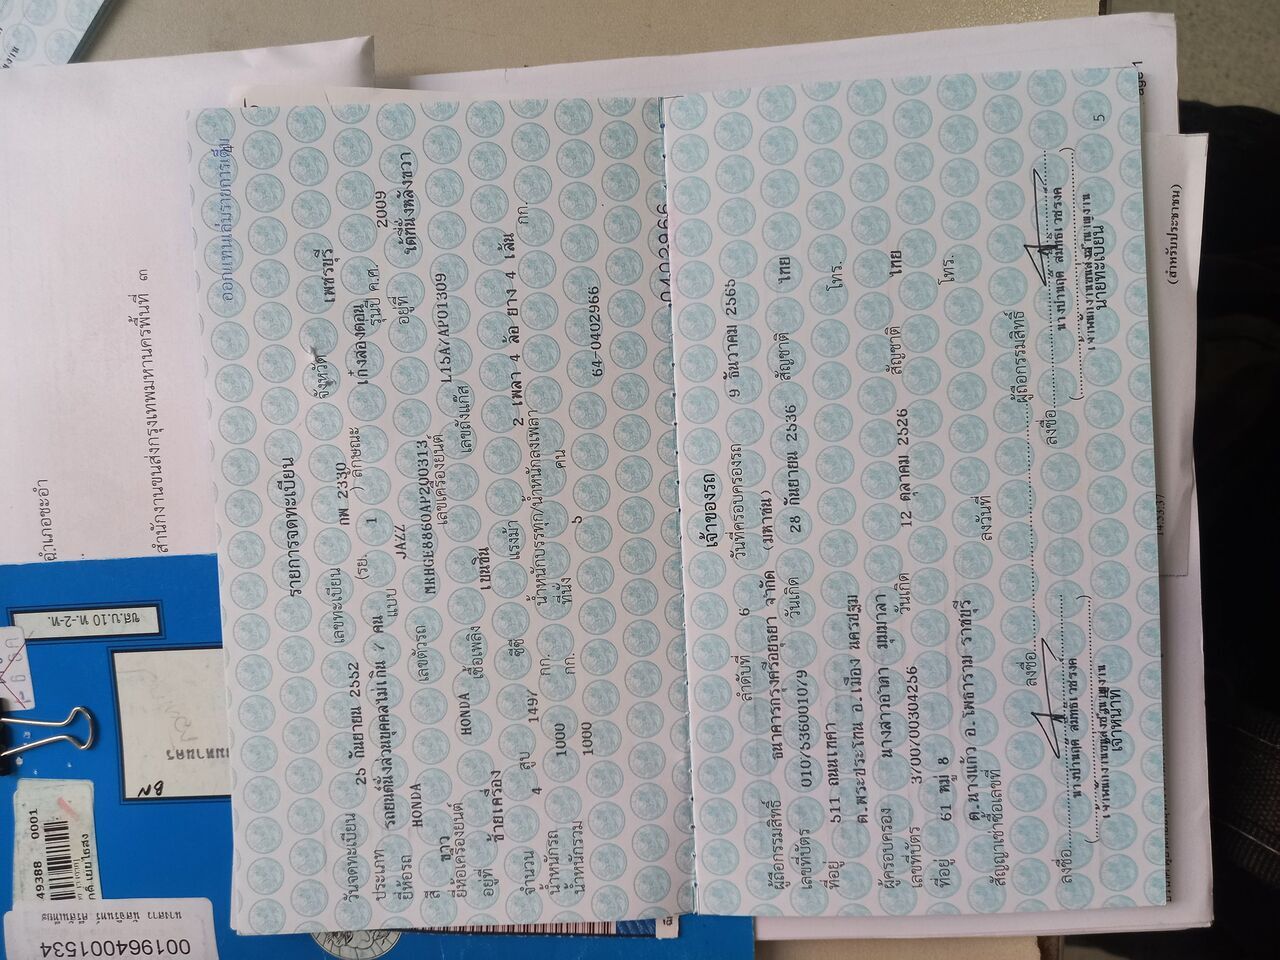 ออกแทนเล่มรายการเต็ม
รายการจดทะเบียน
วันจดทะเบียน 25 กันยายน 2552 เลขทะเบียน กพ 2330 จังหวัด เพชรบุรี
ประเภท รถยนต์นั่งส่วนบุคคลไม่เกิน 7 คน (รย. 1 ) ลักษณะ เก๋งสองตอน
ยี่ห้อรถ HONDA แบบ JAZZ รุ่นปี ค.ศ. 2009
สี ขาว เลขตัวรถ MRHGE8860AP200313 อยู่ที่ ใต้ที่นั่งหลังขวา
ยี่ห้อเครื่องยนต์ HONDA เลขเครื่องยนต์ L15A7AP01309
อยู่ที่ ซ้ายเครื่อง เชื้อเพลิง เบนซิน เลขถังแก๊ส
จำนวน 4 สูบ 1497 ซีซี แรงม้า 2 เพลา 4 ล้อ ยาง 4 เส้น
น้ำหนักรถ 1000 กก. น้ำหนักบรรทุก/น้ำหนักลงเพลา กก.
น้ำหนักรวม 1000 กก. ที่นั่ง 5 คน
64-0402966
เจ้าของรถ
ลำดับที่ 6 วันที่ครอบครองรถ 9 ธันวาคม 2565
ผู้ถือกรรมสิทธิ์ ธนาคารกรุงศรีอยุธยา จำกัด (มหาชน)
เลขที่บัตร 0107536001079 วันเกิด 28 กันยายน 2536 สัญชาติ ไทย
ที่อยู่ 511 ถนนเทศา
ต.พระประโทน อ.เมือง นครปฐม โทร.
ผู้ครอบครอง นางสาวอำภา มุมมาลา
เลขที่บัตร 3700700304256 วันเกิด 12 ตุลาคม 2526 สัญชาติ ไทย
ที่อยู่ 61 หมู่ 8
ต.นางแก้ว อ.โพธาราม ราชบุรี โทร.
สัญญาเช่าซื้อเลขที่ ลงวันที่
ลงชื่อ ผู้ถือกรรมสิทธิ์
ลงชื่อ ลงชื่อ
เจ้าหน้าที่ นายทะเบียน
5
อำเภอชะอำ
สำนักงานขนส่งกรุงเทพมหานครพื้นที่ ๓
(สำหรับประชาชน)
ขส.บ.10 ท.-2-ท.
BN
49388 0001
0019964001534